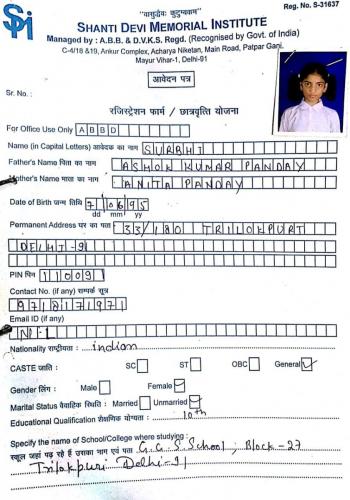 "वसुधैव कुटुम्बकम्"
Reg. No. S-31637
SHANTI DEVI MEMORIAL INSTITUTE
Managed by : A.B.B. & D.V.K.S. Regd. (Recognised by Govt. of India)
C-4/18 &19, Ankur Complex, Acharya Niketan, Main Road, Patpar Ganj,
Mayur Vihar-1, Delhi-91
आवेदन पत्र
Sr. No. :
रजिस्ट्रेशन फार्म / छात्रवृत्ति योजना
For Office Use Only A B B D
Name (in Capital Letters) आवेदक का नाम SURBHI
Father's Name पिता का नाम ASHOK KUMAR PANDAY
Mother's Name माता का नाम ANITA PANDAY
Date of Birth जन्म तिथि 7/06 95
dd mm yy
Permanent Address घर का पता 33/180 TRILOKPURI
DELHI-91
PIN पिन 110091
Contact No. (if any) सम्पर्क सूत्र
9718171971
Email ID (if any)
Nationality राष्ट्रीयता : indian
CASTE जाति : SC ST OBC General
Gender लिंग : Male Female
Marital Status वैवाहिक स्थिति : Married Unmarried
Educational Qualification शैक्षणिक योग्यता : 10th
Specify the name of School/College where studying :
स्कूल जहां पढ़ रहे हैं उसका नाम एवं पता G.G.S.School; Block-27
Trilokpuri Delhi-91